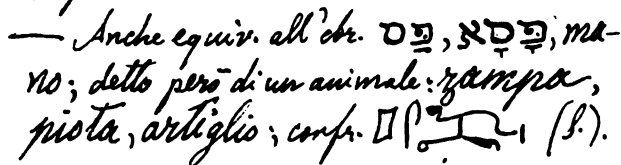 — Anche equiv. all'ebr. פַּס, פַּסָּא, ma-
no; detto però di un animale: zampa,
piota, artiglio; confr. (S.).